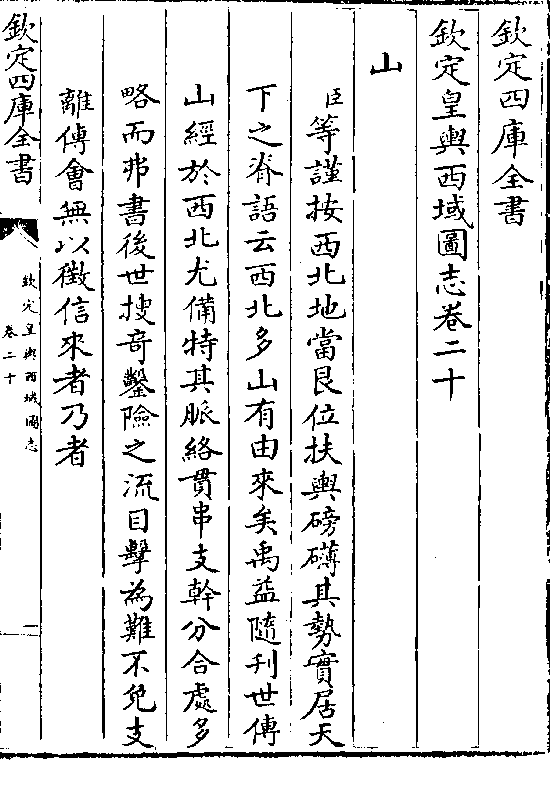 欽定四庫全書
欽定皇輿西域圖志卷二十
山
臣等謹按西北地當艮位扶輿磅礴其勢實居天
下之脊語云西北多山有由來矣禹益隨刋世傳
山經於西北尤備特其脈絡貫串支幹分合處多
略而弗書後世搜奇鑿險之流目擊為難不免支
離傅會無以徵信來者乃者
欽定四庫全書
欽定皇輿西域圖志
卷二十
一